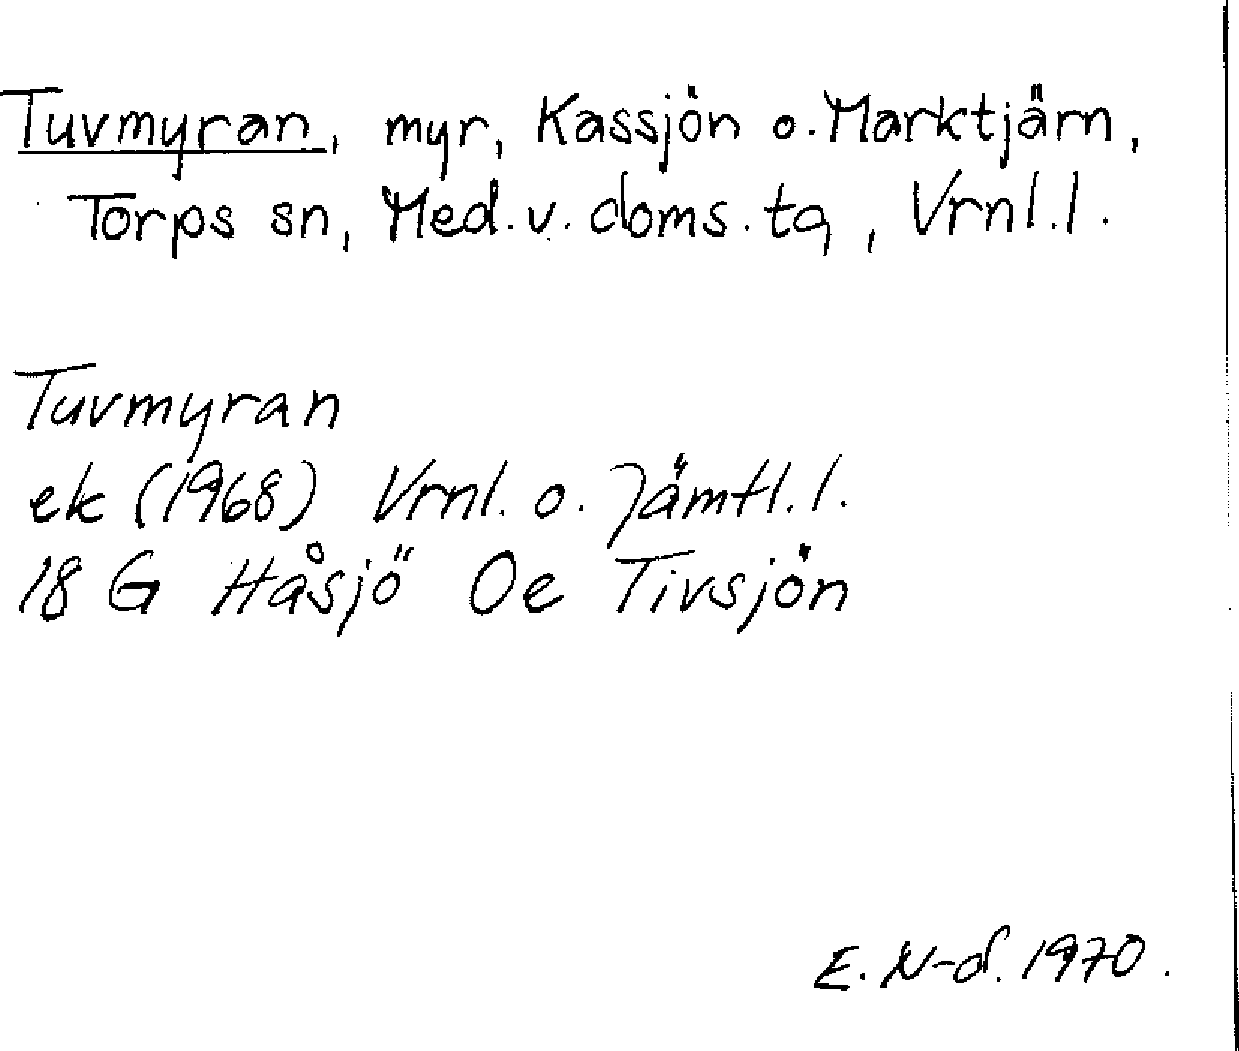 Tuvmyran, myr, Kassjön o. Marktjärn,
Torps sn, Med. v. doms. tg, Vrnl. l.
Tuvmyran
ek (1968) Vrnl. o. Jämtl. l.
18 G Håsjö Oe Tivsjön
E. N-d. 1970.